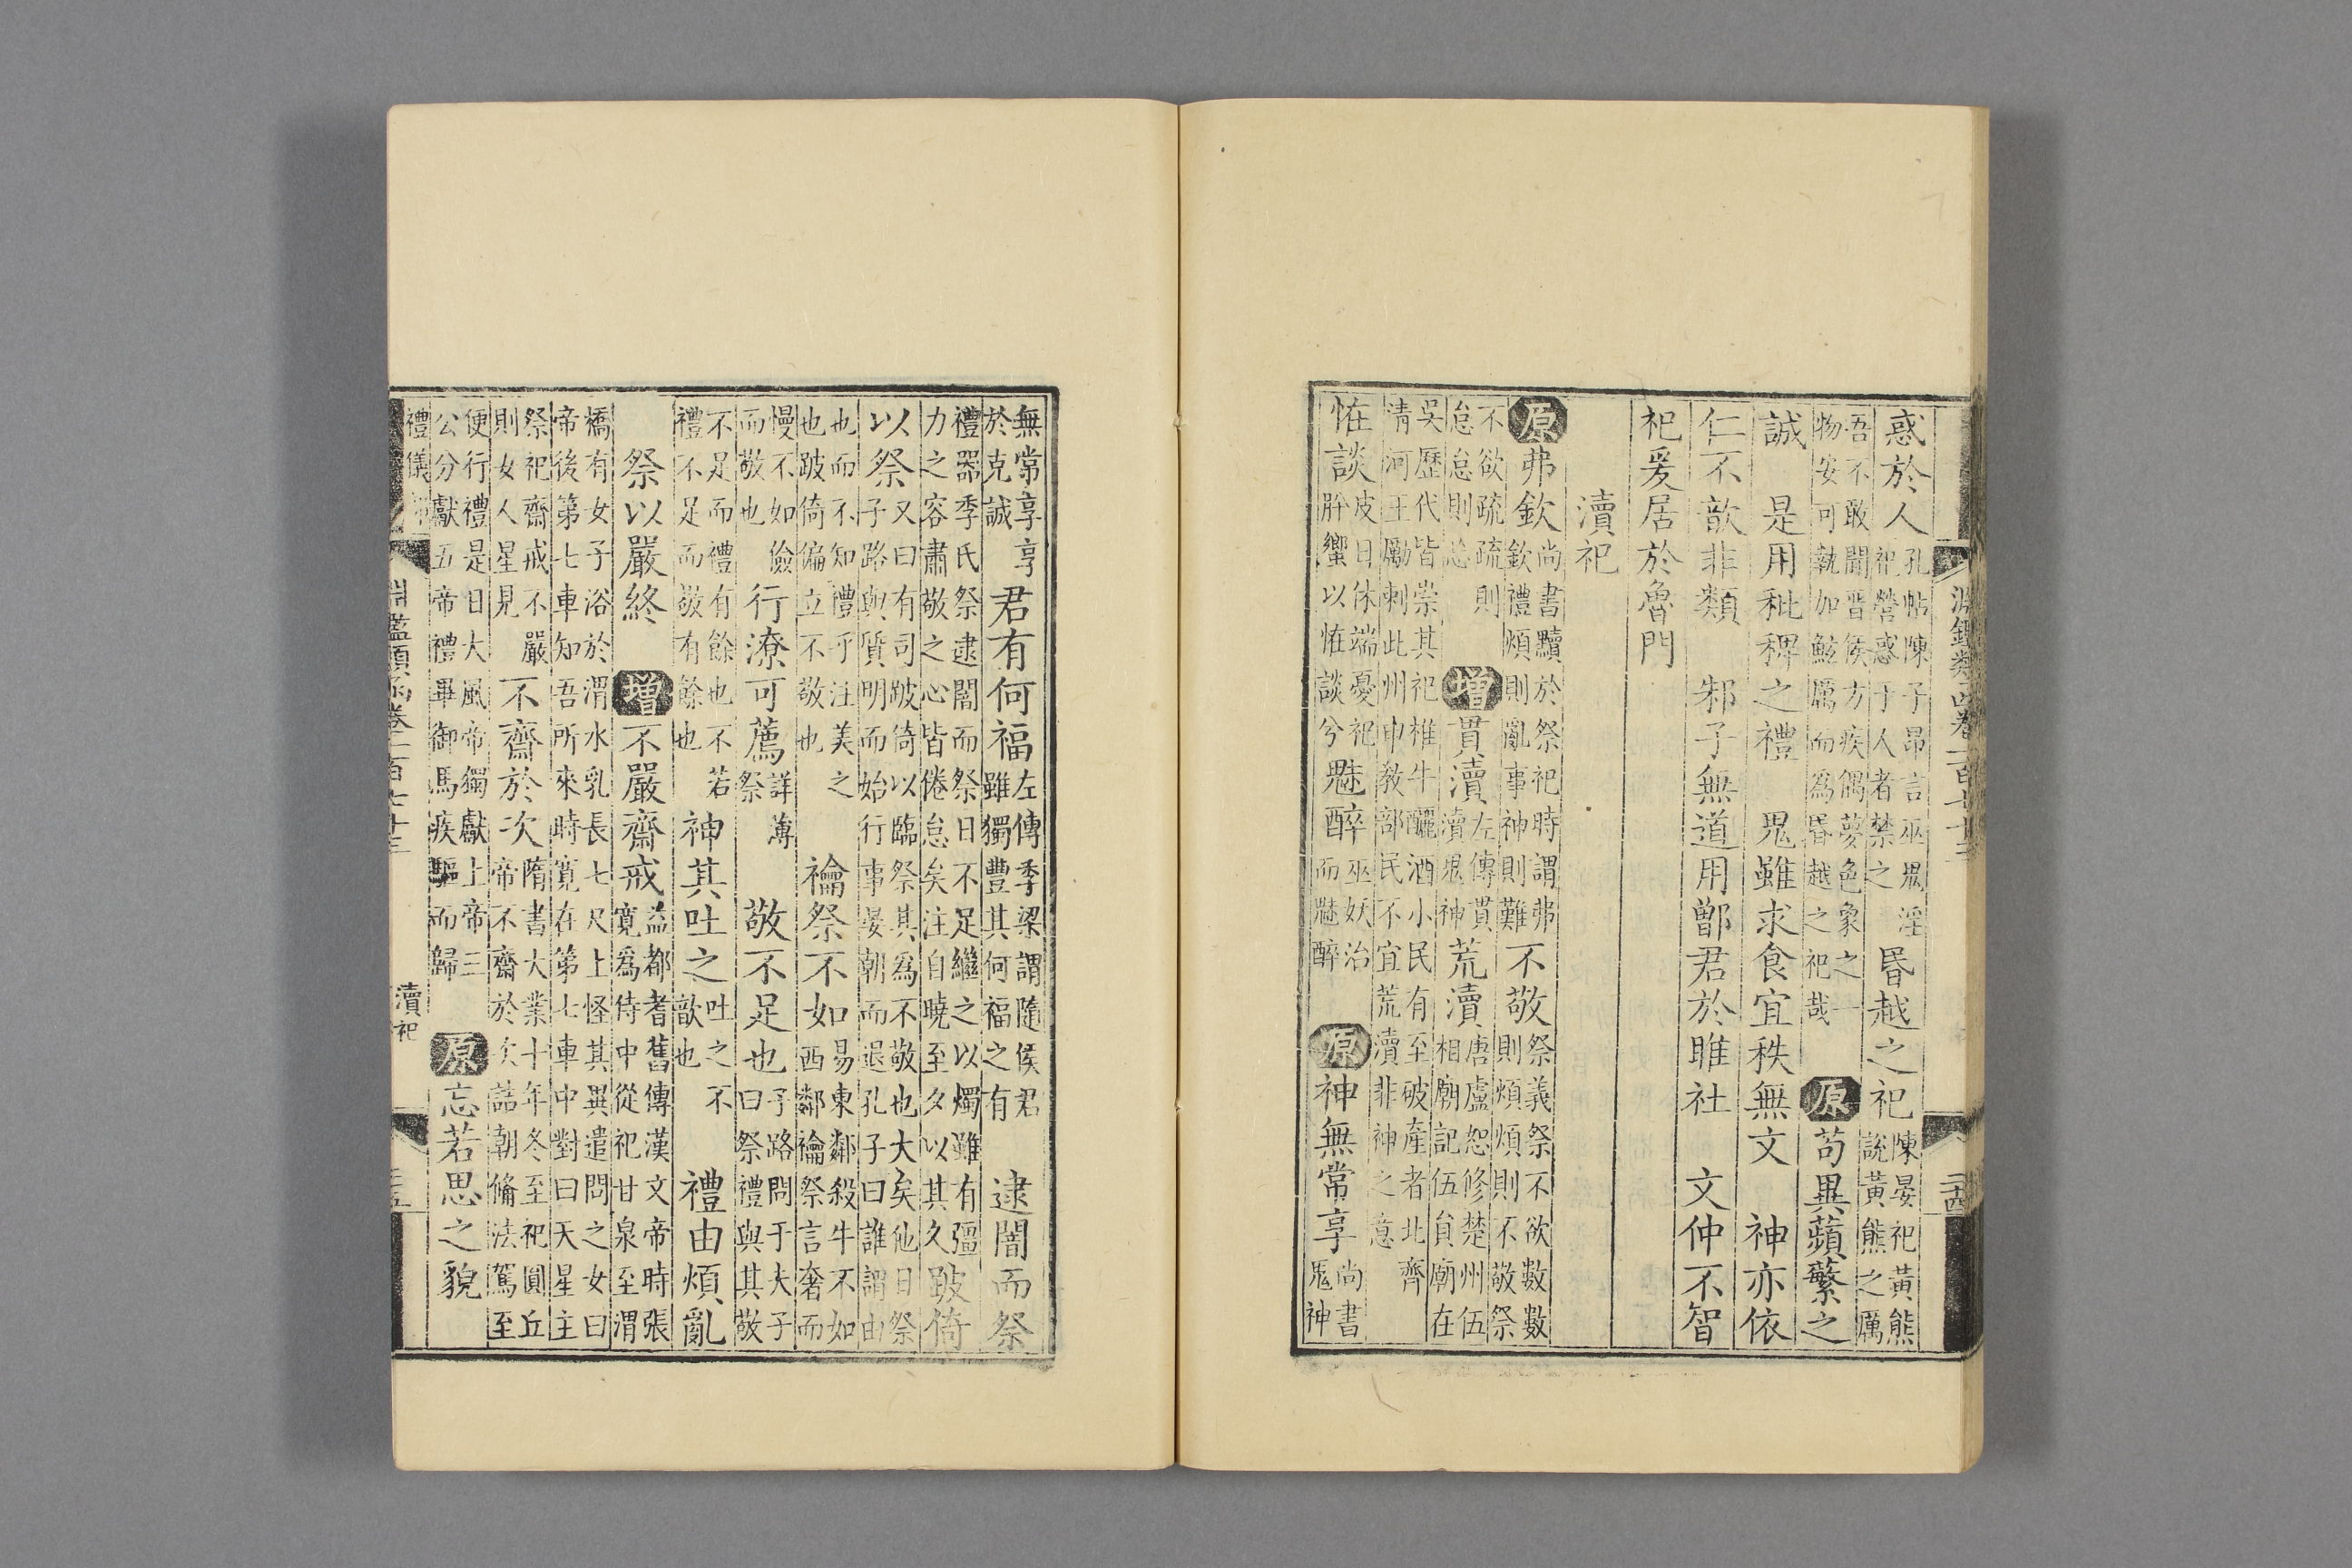 淵鑑類函卷一百七十三 三十四
惑於人孔帖陳子昂言巫鬼淫祀營惑于人者禁之昬越之祀陳晏祀黃熊說黃熊之厲
吾不敢聞晋侯方疾偶夢色象之一物安可執加鮌厲而為昬越之祀哉原苟異蘋蘩之
誠 是用秕稗之禮 鬼雖求食宜秩無文 神亦依
仁不歆非類 邾子無道用鄫君於睢社 文仲不智
祀爰居於魯門
瀆祀
原弗欽尚書黷於祭祀時謂弗欽禮煩則亂事神則難不敬祭義祭不欲數數則煩煩則不敬祭
不欲疏疏則怠怠則忘增貫瀆左傳貫瀆鬼神荒瀆唐盧恕修楚州伍相廟記伍員廟在
吳歷代皆崇其祀椎牛釃酒小民有至破產者北齊清河王勵刺此州申教部民不宜荒瀆非神之意
恠談皮日休端憂祀肸蠁以恠談兮魃醉巫妖治而魃醉原神無常享尚書鬼神
無常享享於克誠君有何福左傳季梁謂隨侯君雖獨豐其何福之有逮闇而祭
禮器季氏祭逮闇而祭日不足繼之以燭雖有彊力之容肅敬之心皆倦怠矣注自曉至夕以其久跛倚
以祭又曰有司跛倚以臨祭其為不敬也大矣他日祭子路與質明而始行事晏朝而退孔子曰誰謂由
也而不知禮乎注美之也跛倚偏立不敬也禴祭不如易東鄰殺牛不如西鄰禴祭言奢而
慢不如儉而敬也行潦可薦詳薄祭敬不足也子路問于夫子曰祭禮與其敬
不足而禮有餘也不若禮不足而敬有餘也神其吐之吐之不歆也禮由煩亂
祭以嚴終增不嚴齋戒益都耆舊傳漢文帝時張寬為侍中從祀甘泉至渭
橋有女子浴於渭水乳長七尺上怪其異遣問之女曰帝後第七車知吾所來時寬在第七車中對曰天星主
祭祀齋戒不嚴則女人星見不齋於次隋書大業十年冬至祀圓丘帝不齋於次詰朝備法駕至
便行禮是日大風帝獨獻上帝三公分獻五帝禮畢御馬疾驅而歸原忘若思之貌
禮儀部 淵鑑類函卷一百七十三 瀆祀 三十五